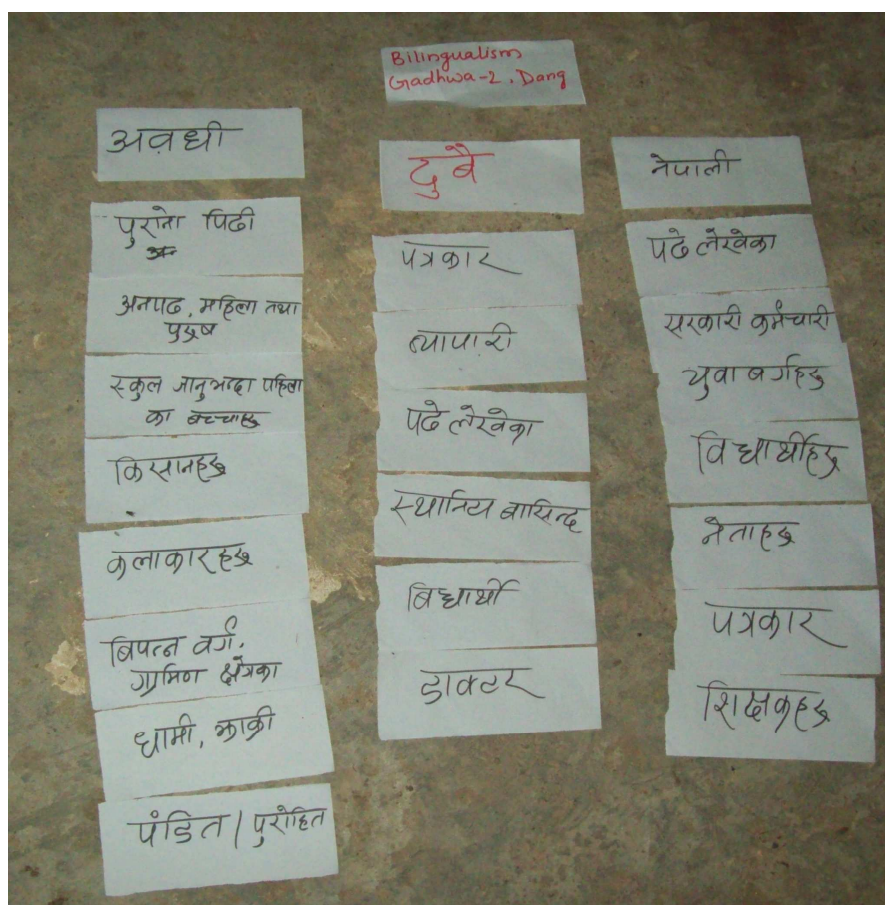 Bilingualism
Gadhwa-2, Dang
अवधी
पुरानो पिढी
अनपढ, महिला तथा
पुरुष
स्कुल जानुभन्दा पहिला
का बच्चाहरु
किसानहरु
कलाकारहरु
बिपन्न वर्ग,
ग्रामिण क्षेत्रका
धामी, झाक्री
पंडित / पुरोहित
दुबै
पत्रकार
ब्यापारी
पढे लेखेका
स्थानिय बासिन्दा
बिद्यार्थी
डाक्टर
नेपाली
पढे लेखेका
सरकारी कर्मचारी
युवा बर्गहरु
विद्यार्थीहरु
नेताहरु
पत्रकार
शिक्षकहरु